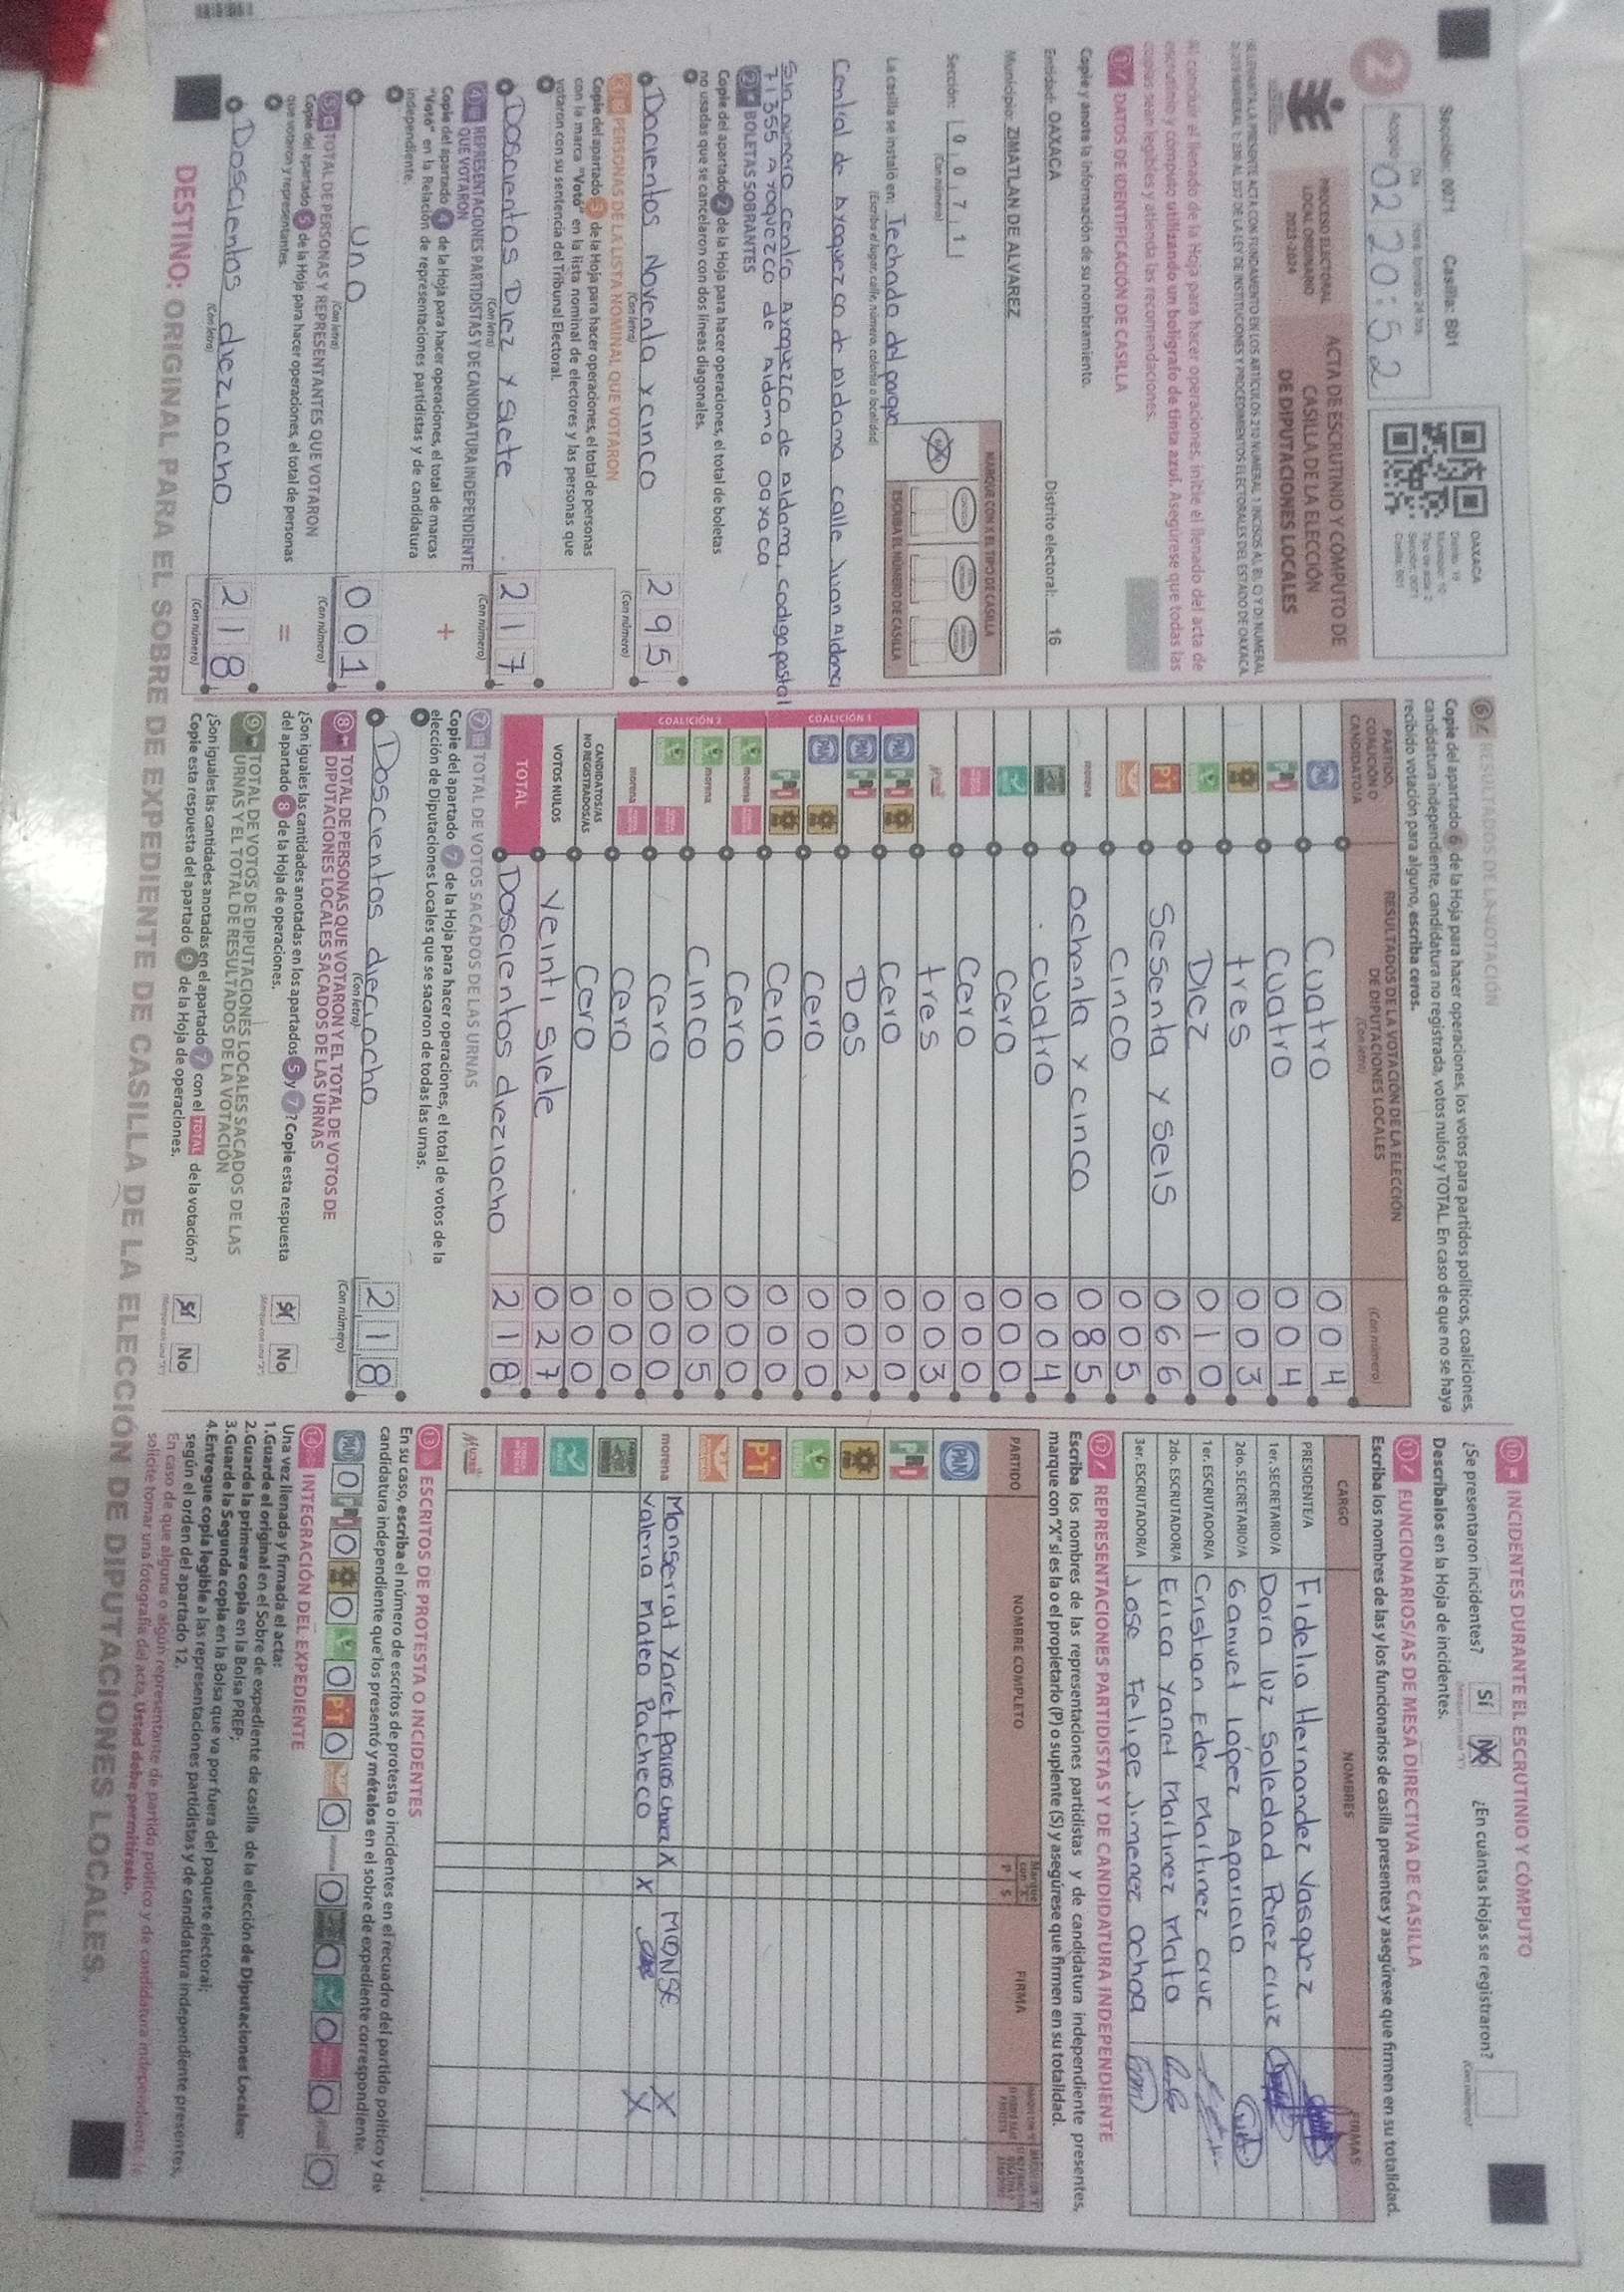 Sección: 0071 Casilla: B01
OAXACA
23
Acopio
Día
Hora, formato 24 hrs.
02 20:52
PROCESO ELECTORAL
LOCAL ORDINARIO
2023-2024
ACTA DE ESCRUTINIO Y CÓMPUTO DE
CASILLA DE LA ELECCIÓN
DE DIPUTACIONES LOCALES
Al concluir el llenado de la Hoja para hacer operaciones, inicie el llenado del acta de
escrutinio y cómputo utilizando un bolígrafo de tinta azul. Asegúrese que todas las
copias sean legibles y atienda las recomendaciones.
1 DATOS DE IDENTIFICACIÓN DE CASILLA
Copie y anote la información de su nombramiento.
Entidad: OAXACA Distrito electoral: 16
Municipio: ZIMATLAN DE ALVAREZ
Sección: 0 0 7 1
(Con número)
MARQUE CON X EL TIPO DE CASILLA
ESCRIBA EL NÚMERO DE CASILLA
La casilla se instaló en: Techado del parque
(Escriba el lugar, calle, número, colonia o localidad)
Central de Ayoquezco de aldama calle Juan Aldama
Sin numero centro Ayoquezco de aldama, codigo postal
71355 Ayoquezco de aldama Oaxaca
2 BOLETAS SOBRANTES
Copie del apartado 2 de la Hoja para hacer operaciones, el total de boletas
no usadas que se cancelaron con dos líneas diagonales.
Docientos Noventa y cinco 295
(Con letra) (Con número)
3 PERSONAS DE LA LISTA NOMINAL QUE VOTARON
Copie del apartado 3 de la Hoja para hacer operaciones, el total de personas
con la marca "Votó" en la lista nominal de electores y las personas que
votaron con su sentencia del Tribunal Electoral.
Doscientos Diez y siete 217
(Con letra) (Con número)
4 REPRESENTACIONES PARTIDISTAS Y DE CANDIDATURA INDEPENDIENTE
QUE VOTARON
Copie del apartado 4 de la Hoja para hacer operaciones, el total de marcas
"Votó" en la Relación de representaciones partidistas y de candidatura
independiente.
+
Uno 001
(Con letra) (Con número)
5 TOTAL DE PERSONAS Y REPRESENTANTES QUE VOTARON
Copie del apartado 5 de la Hoja para hacer operaciones, el total de personas
que votaron y representantes.
=
Doscientos dieziocho 218
(Con letra) (Con número)
6 RESULTADOS DE LA VOTACIÓN
Copie del apartado 6 de la Hoja para hacer operaciones, los votos para partidos políticos, coaliciones,
candidatura independiente, candidatura no registrada, votos nulos y TOTAL. En caso de que no se haya
recibido votación para alguno, escriba ceros.
PARTIDO,
COALICIÓN O
CANDIDATO/A
RESULTADOS DE LA VOTACIÓN DE LA ELECCIÓN
DE DIPUTACIONES LOCALES
(Con letra)
(Con número)
PAN Cuatro 004
PRI Cuatro 004
tres 003
Diez 010
PT Sesenta y seis 066
cinco 005
morena ochenta y cinco 085
cuatro 004
cero 000
Cero 000
tres 003
COALICIÓN 1
PAN PRI Cero 000
PAN PRI Dos 002
PAN Cero 000
PRI Cero 000
COALICIÓN 2
morena Cero 000
morena Cinco 005
Cero 000
morena Cero 000
CANDIDATOS/AS
NO REGISTRADOS/AS Cero 000
VOTOS NULOS Veinti siete 027
TOTAL Doscientos dieziocho 218
7 TOTAL DE VOTOS SACADOS DE LAS URNAS
Copie del apartado 7 de la Hoja para hacer operaciones, el total de votos de la
elección de Diputaciones Locales que se sacaron de todas las urnas.
Doscientos dieciocho 218
(Con letra) (Con número)
8 TOTAL DE PERSONAS QUE VOTARON Y EL TOTAL DE VOTOS DE
DIPUTACIONES LOCALES SACADOS DE LAS URNAS
¿Son iguales las cantidades anotadas en los apartados 5 y 7? Copie esta respuesta
del apartado 8 de la Hoja de operaciones.
Sí No
9 TOTAL DE VOTOS DE DIPUTACIONES LOCALES SACADOS DE LAS
URNAS Y EL TOTAL DE RESULTADOS DE LA VOTACIÓN
¿Son iguales las cantidades anotadas en el apartado 7 con el TOTAL de la votación?
Copie esta respuesta del apartado 9 de la Hoja de operaciones.
Sí No
10 INCIDENTES DURANTE EL ESCRUTINIO Y CÓMPUTO
¿Se presentaron incidentes? Sí No ¿En cuántas Hojas se registraron?
Descríbalos en la Hoja de incidentes.
11 FUNCIONARIOS/AS DE MESA DIRECTIVA DE CASILLA
Escriba los nombres de las y los funcionarios de casilla presentes y asegúrese que firmen en su totalidad.
CARGO NOMBRES FIRMAS
PRESIDENTE/A Fidelia Hernandez Vasquez
1er. SECRETARIO/A Dora luz Soledad Perez cruz
2do. SECRETARIO/A Gamuel López Aparicio
1er. ESCRUTADOR/A Cristian Eder Martinez cruz
2do. ESCRUTADOR/A Erica Yanet Martinez Mato
3er. ESCRUTADOR/A Jose Felipe Jimenez Ochoa
12 REPRESENTACIONES PARTIDISTAS Y DE CANDIDATURA INDEPENDIENTE
Escriba los nombres de las representaciones partidistas y de candidatura independiente presentes,
marque con "X" si es la o el propietario (P) o suplente (S) y asegúrese que firmen en su totalidad.
PARTIDO NOMBRE COMPLETO Marque con "X" P S FIRMA
PAN
PRI
PT
morena Monserrat Yaret Porras Chavez X MONSE X
Valeria Mateo Pacheco X X
13 ESCRITOS DE PROTESTA O INCIDENTES
En su caso, escriba el número de escritos de protesta o incidentes en el recuadro del partido político y de
candidatura independiente que los presentó y métalos en el sobre de expediente correspondiente.
PAN 0 PRI 0 0 0 PT 0 0 0 0 0 0 0
14 INTEGRACIÓN DEL EXPEDIENTE
Una vez llenada y firmada el acta:
1.Guarde el original en el Sobre de expediente de casilla de la elección de Diputaciones Locales;
2.Guarde la primera copia en la Bolsa PREP;
3.Guarde la Segunda copia en la Bolsa que va por fuera del paquete electoral;
4.Entregue copia legible a las representaciones partidistas y de candidatura independiente presentes,
según el orden del apartado 12.
En caso de que alguna o algún representante de partido político y de candidatura independiente le
solicite tomar una fotografía del acta, Usted debe permitírselo.
DESTINO: ORIGINAL PARA EL SOBRE DE EXPEDIENTE DE CASILLA DE LA ELECCIÓN DE DIPUTACIONES LOCALES.